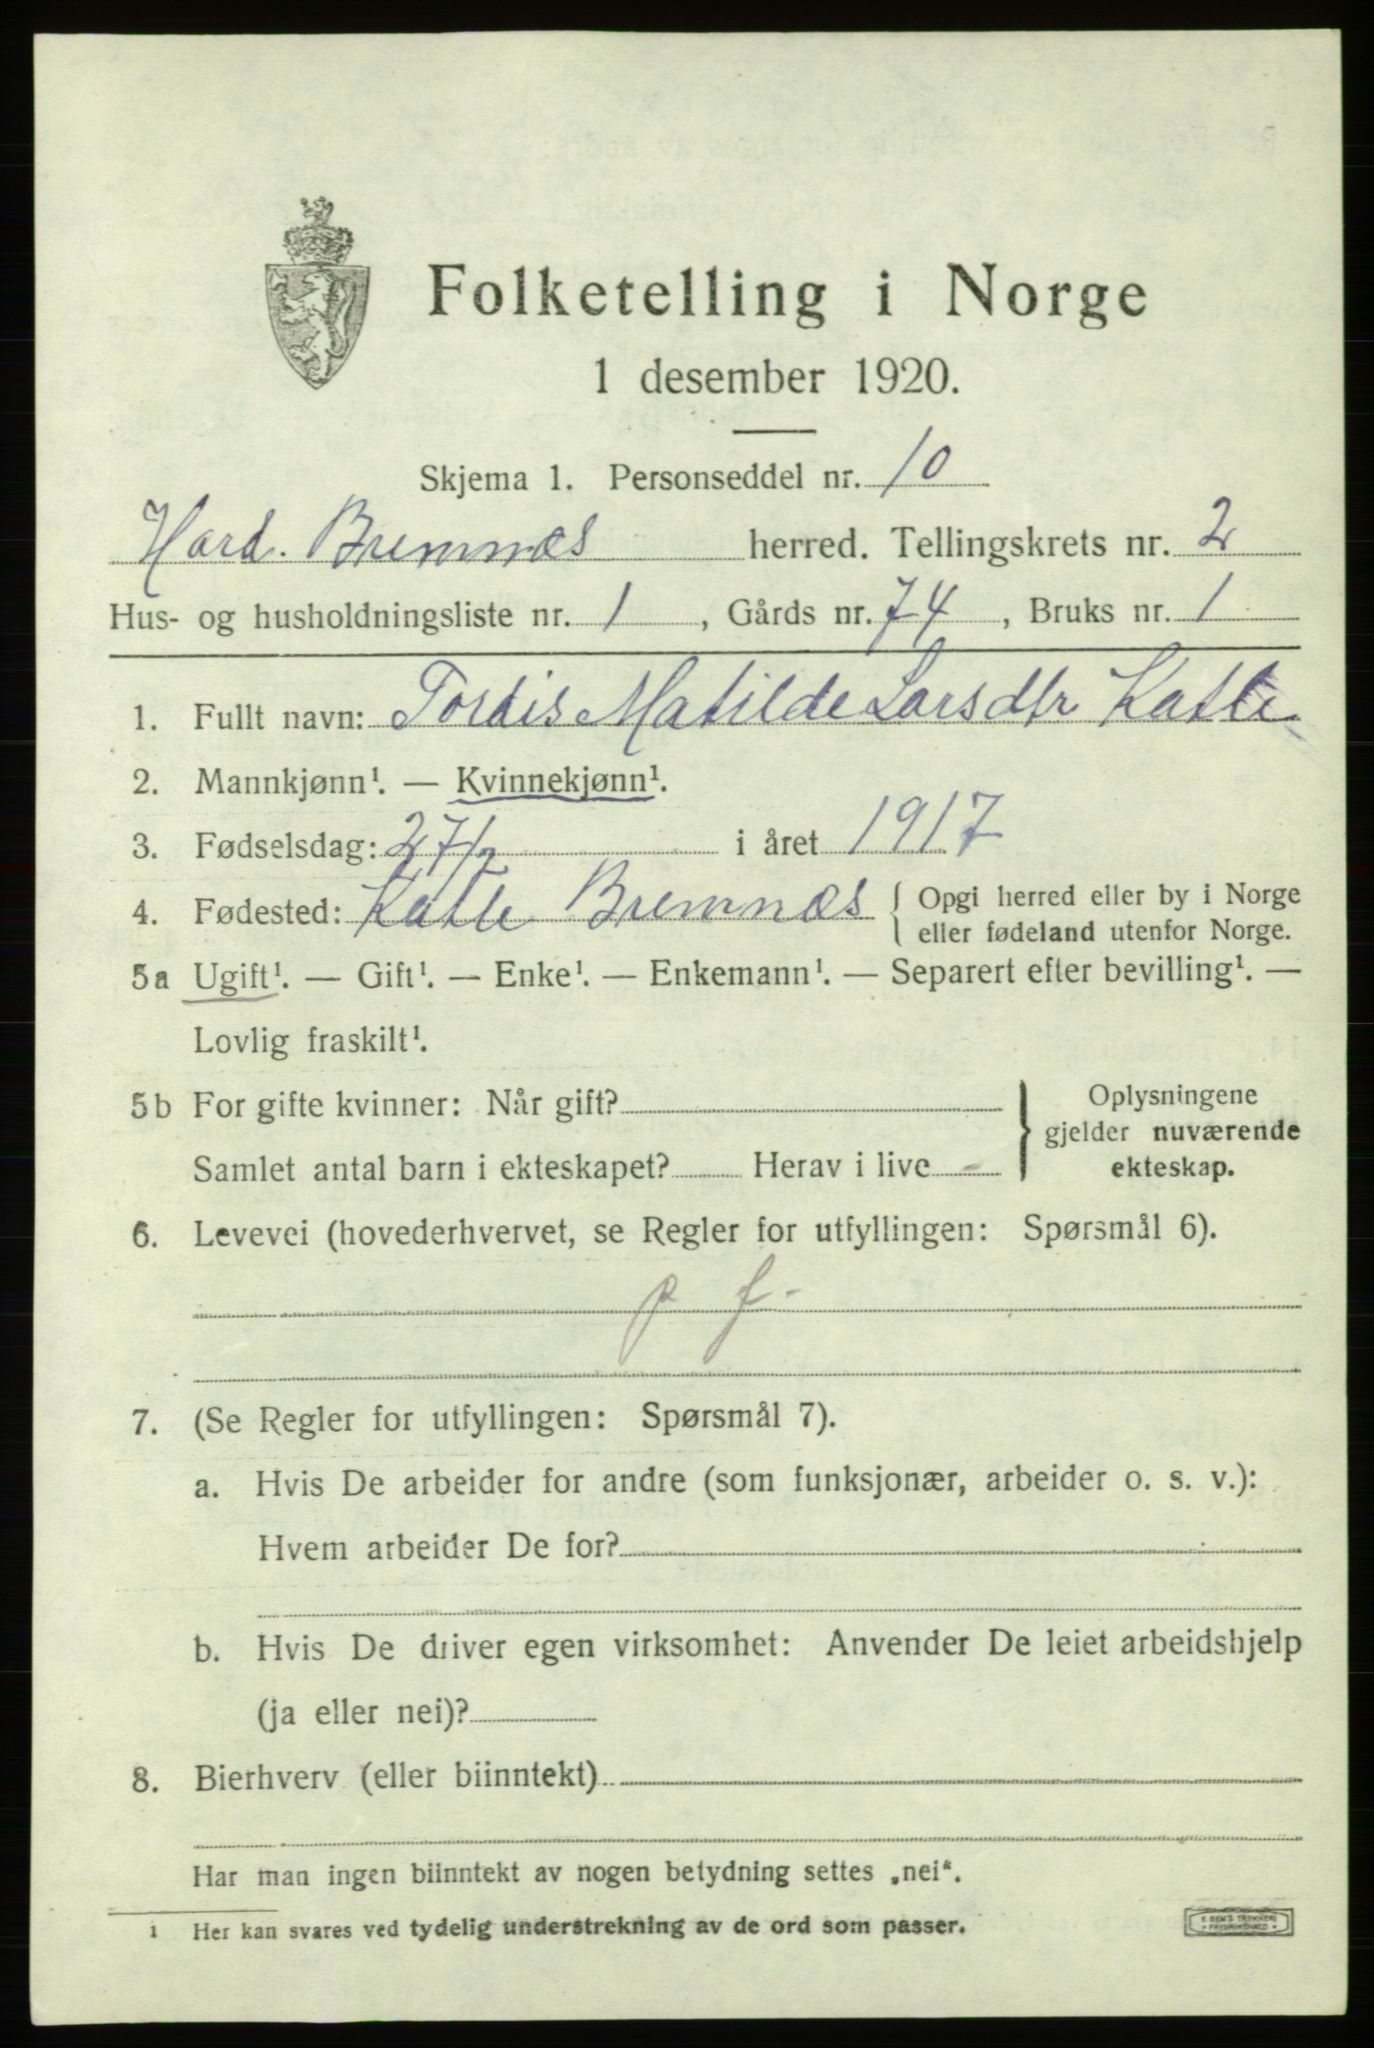 Folketelling i Norge
1 desember 1920.
Skjema 1. Personseddel nr. 10
Hard. Bremnæs herred. Tellingskrets nr. 2
Hus- og husholdningsliste nr. 1, Gårds nr. 74, Bruks nr. 1
1. Fullt navn: Tordis Matilde Larsdtr Katle
2. Mannkjønn¹. — Kvinnekjønn¹.
3. Fødselsdag: 27/2 i året 1917
4. Fødested: Katle Bremnæs { Opgi herred eller by i Norge
eller fødeland utenfor Norge.
5a Ugift¹. — Gift¹. — Enke¹. — Enkemann¹. — Separert efter bevilling¹. —
Lovlig fraskilt¹.
5b For gifte kvinner: Når gift?
Samlet antal barn i ekteskapet? Herav i live
} Oplysningene
gjelder nuværende
ekteskap.
6. Levevei (hovederhvervet, se Regler for utfyllingen: Spørsmål 6).
p f.
7. (Se Regler for utfyllingen: Spørsmål 7).
a. Hvis De arbeider for andre (som funksjonær, arbeider o. s. v.):
Hvem arbeider De for?
b. Hvis De driver egen virksomhet: Anvender De leiet arbeidshjelp
(ja eller nei)?
8. Bierhverv (eller biinntekt)
Har man ingen biinntekt av nogen betydning settes „nei“.
1 Her kan svares ved tydelig understrekning av de ord som passer.